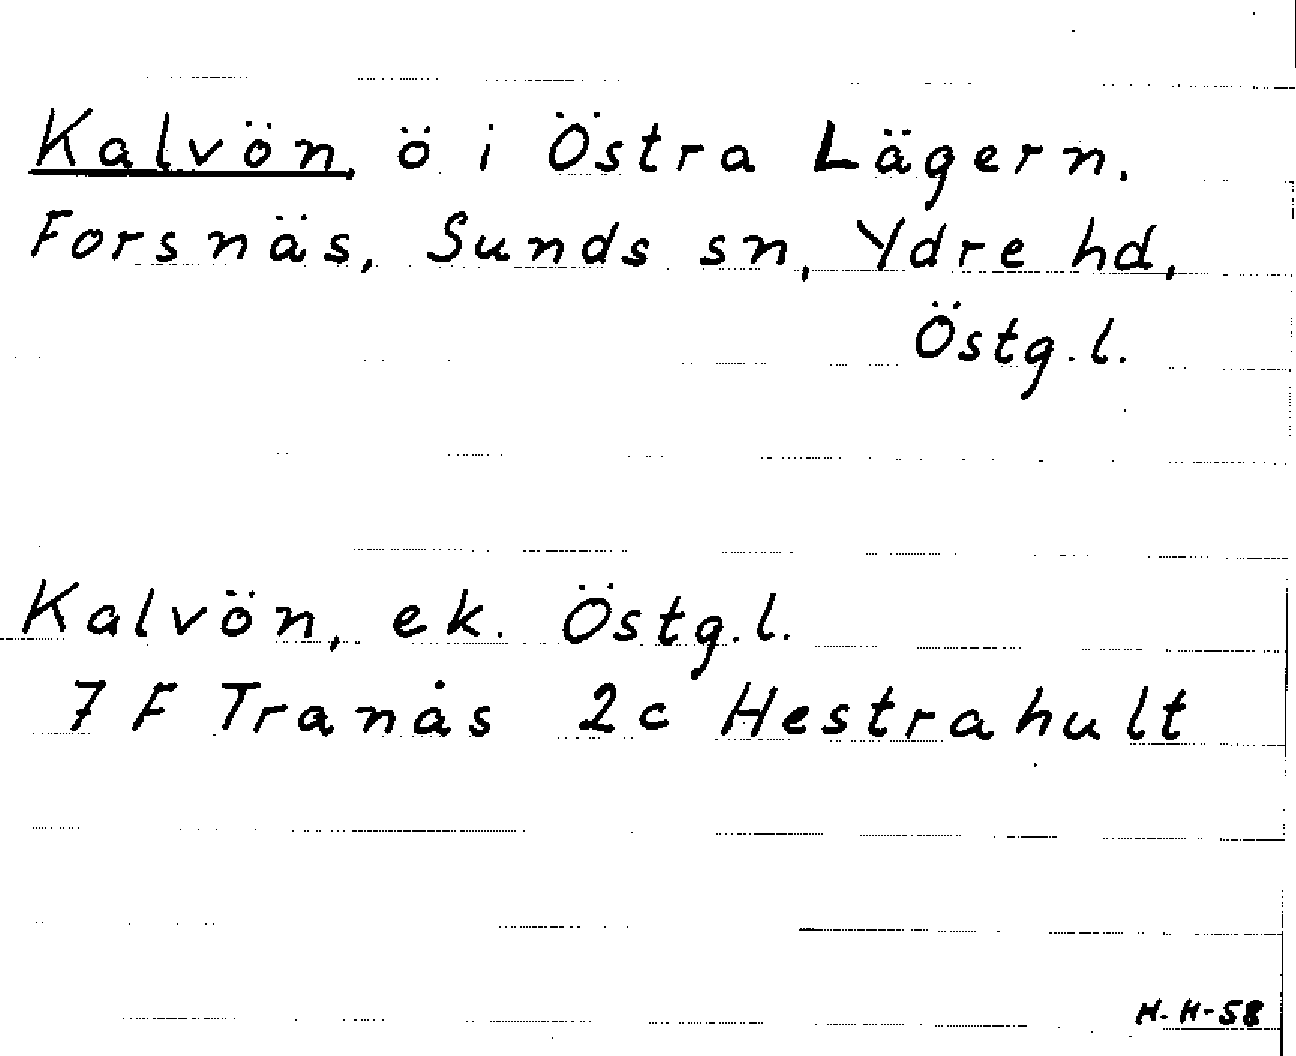 Kalvön, ö i Östra Lägern.
Forsnäs, Sunds sn, Ydre hd,
Östg.l.
Kalvön, ek. Östg.l.
7 F Tranås 2c Hestrahult
H.H-58